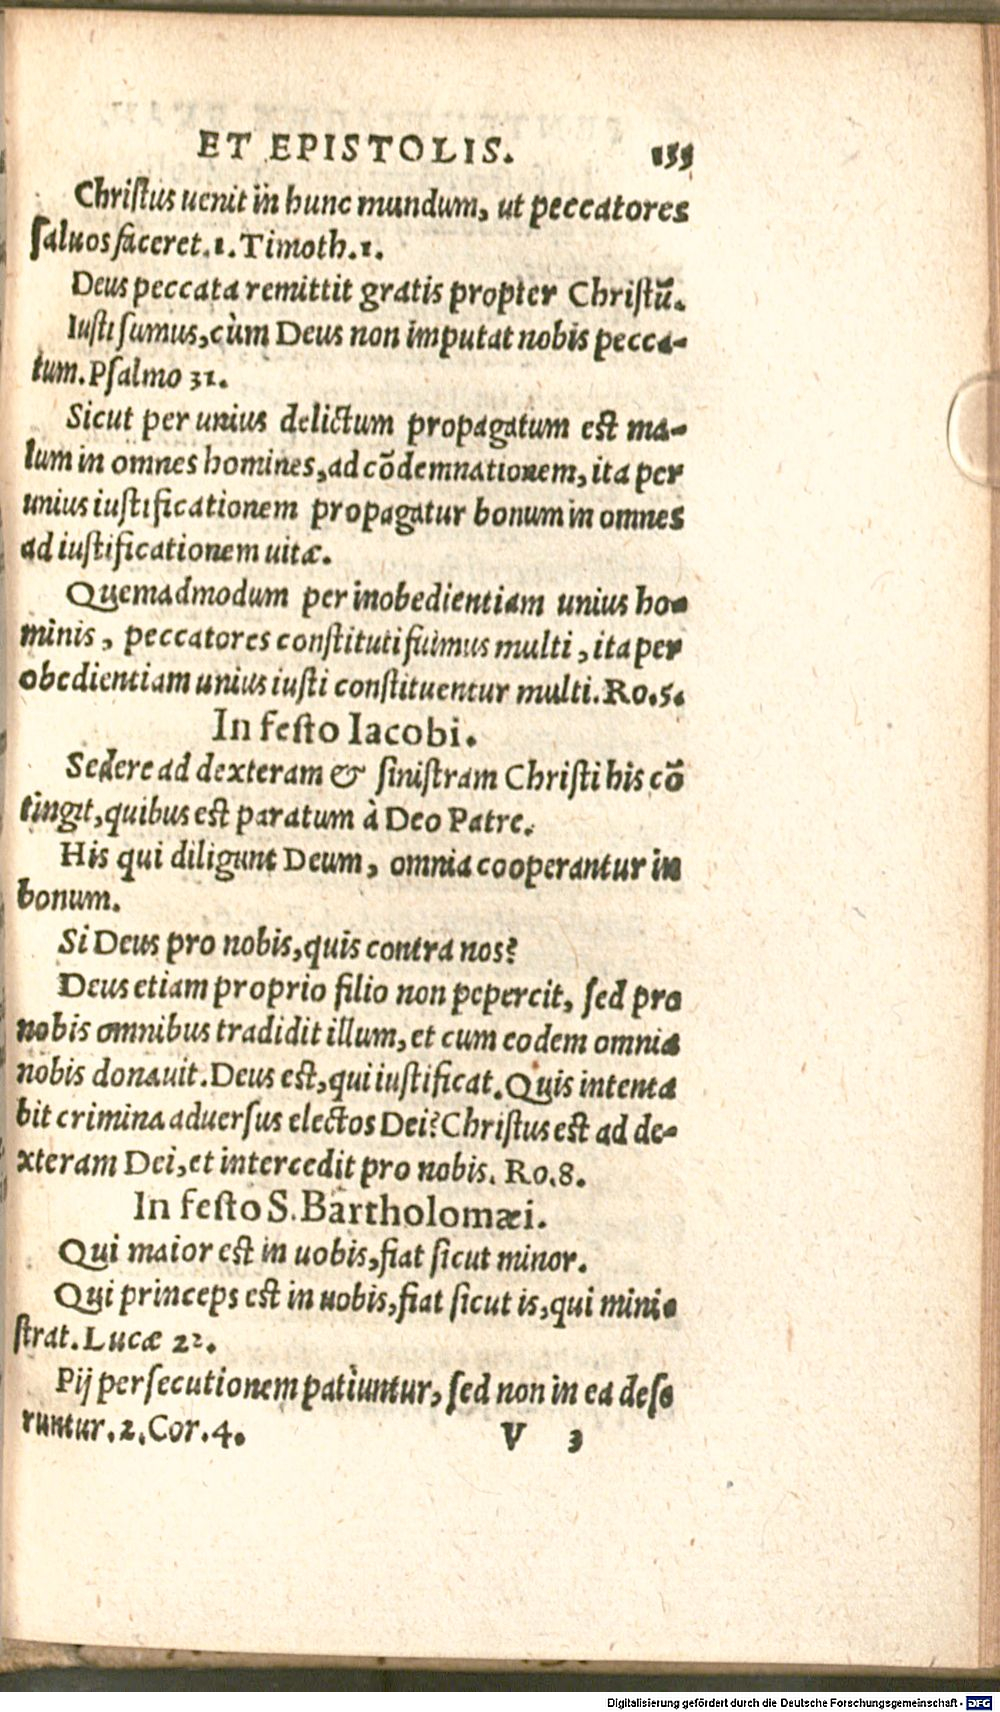 ET EPISTOLIS. 155
Christus uenit in hunc mundum, ut peccatores
saluos faceret.1.Timoth.1.
Deus peccata remittit gratis propter Christū.
Iusti sumus, cùm Deus non imputat nobis pecca-
tum.Psalmo 31.
Sicut per unius delictum propagatum est ma-
lum in omnes homines, ad cōdemnationem, ita per
unius iustificationem propagatur bonum in omnes
ad iustificationem uitæ.
Quemadmodum per inobedientiam unius ho-
minis, peccatores constituti fuimus multi, ita per
obedientiam unius iusti constituentur multi.Ro.5.
In festo Iacobi.
Sedere ad dexteram & sinistram Christi his cō
tingit, quibus est paratum à Deo Patre.
His qui diligunt Deum, omnia cooperantur in
bonum.
Si Deus pro nobis, quis contra nos?
Deus etiam proprio filio non pepercit, sed pro
nobis omnibus tradidit illum, et cum eodem omnia
nobis donauit. Deus est, qui iustificat. Quis intenta
bit crimina aduersus electos Dei? Christus est ad de-
xteram Dei, et intercedit pro nobis. Ro.8.
In festo S. Bartholomæi.
Qui maior est in uobis, fiat sicut minor.
Qui princeps est in uobis, fiat sicut is, qui mini-
strat. Lucæ 22.
Pij persecutionem patiuntur, sed non in ea dese
runtur.2.Cor.4. V 3
Digitalisierung gefördert durch die Deutsche Forschungsgemeinschaft - DFG